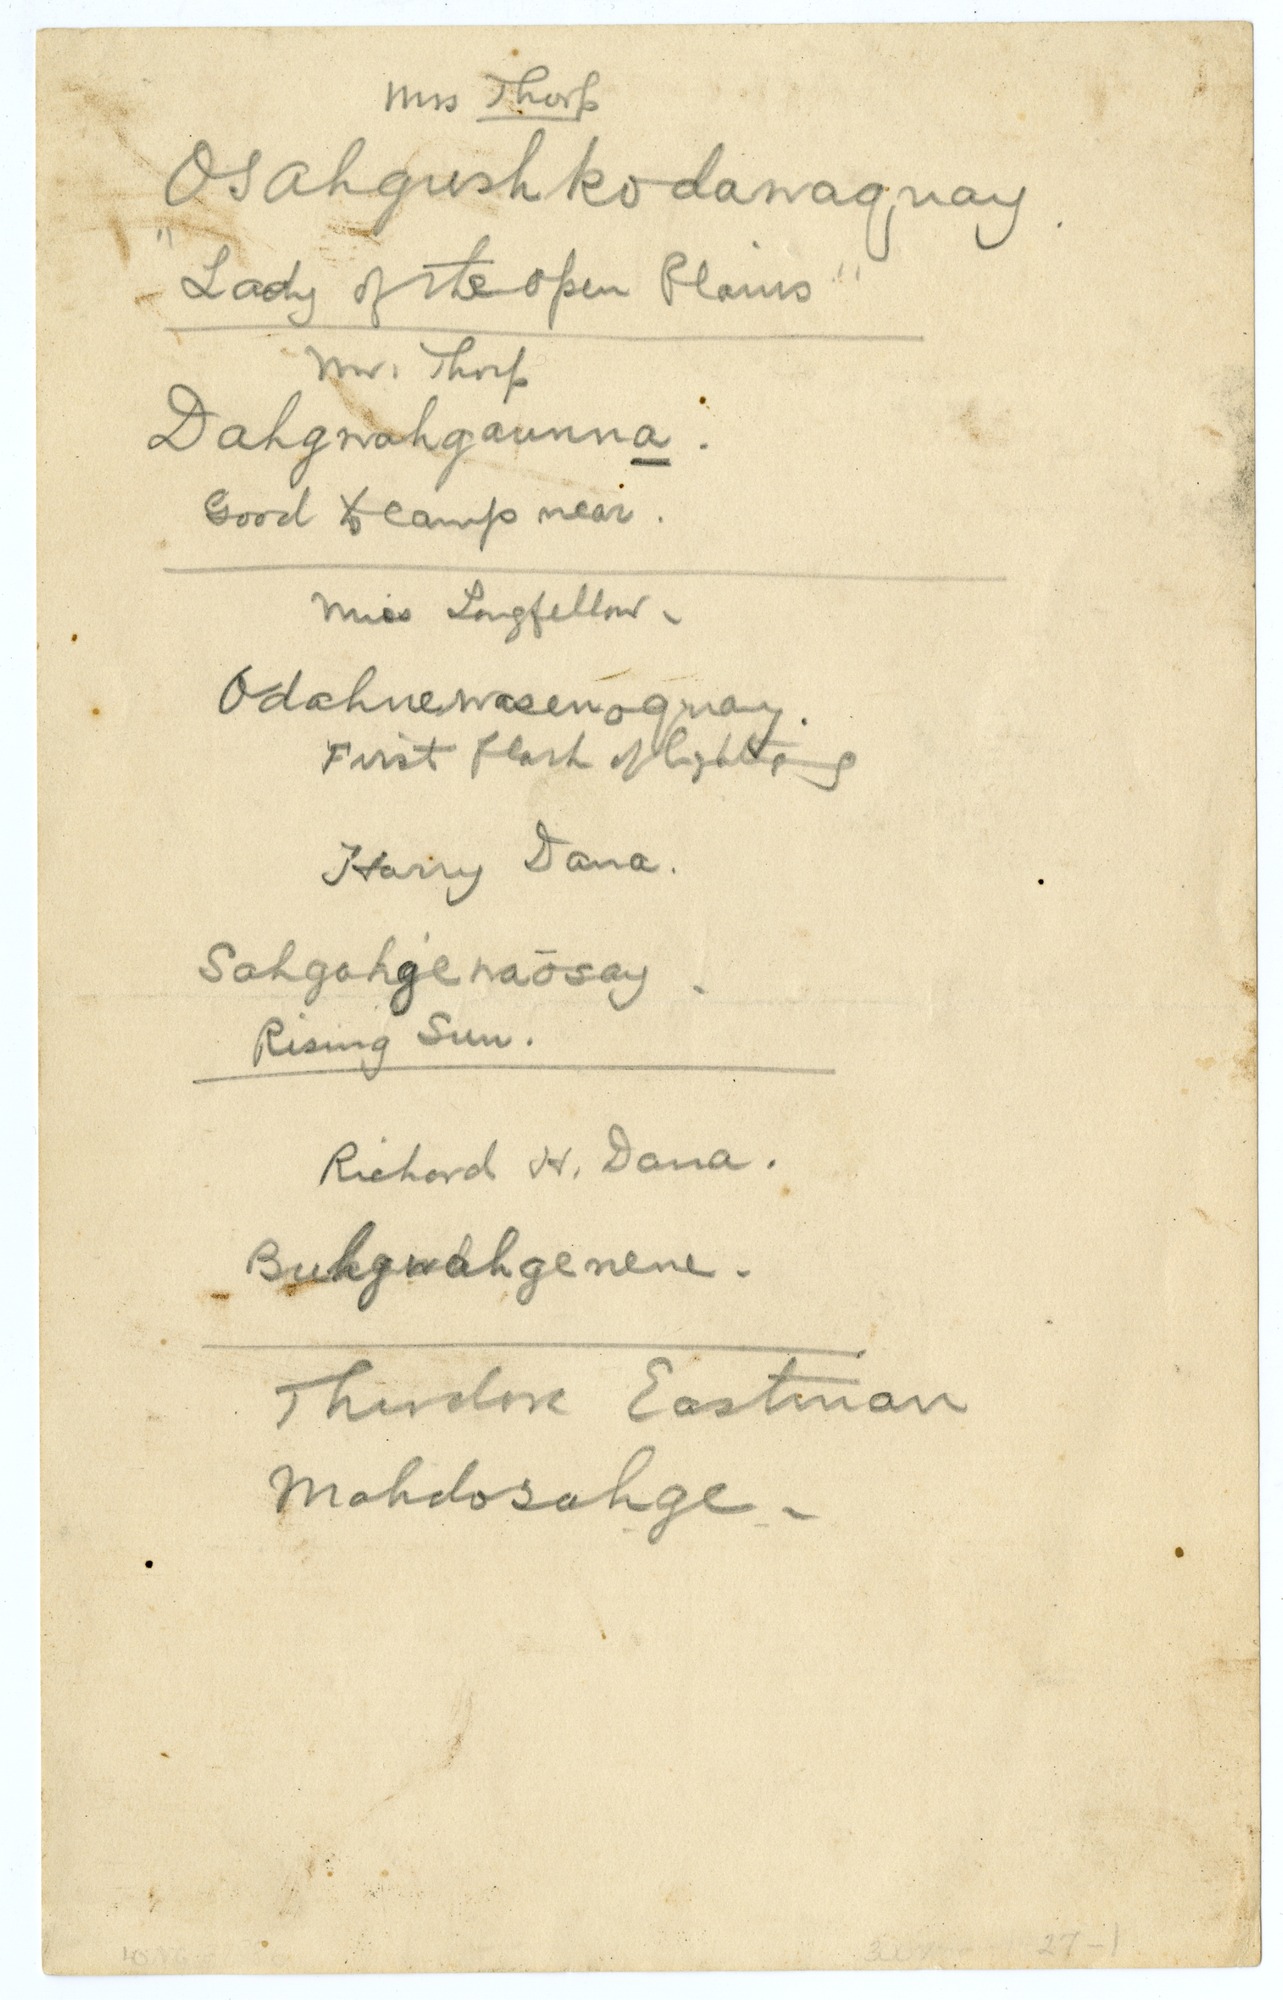 Mrs Thorp
Osahgushkodawaquay.
"Lady of the open Plains"
Mr. Thorp
Dahgwahgaunna.
Good to camp near.
Miss Longfellow.
Odahnewasenoquay.
First flash of lightning
Harry Dana.
Sahgahgewaōsay.
Rising Sun.
Richard H. Dana.
Buhgwahgenene.
Theodore Eastman
Mahdosahge.
27-1